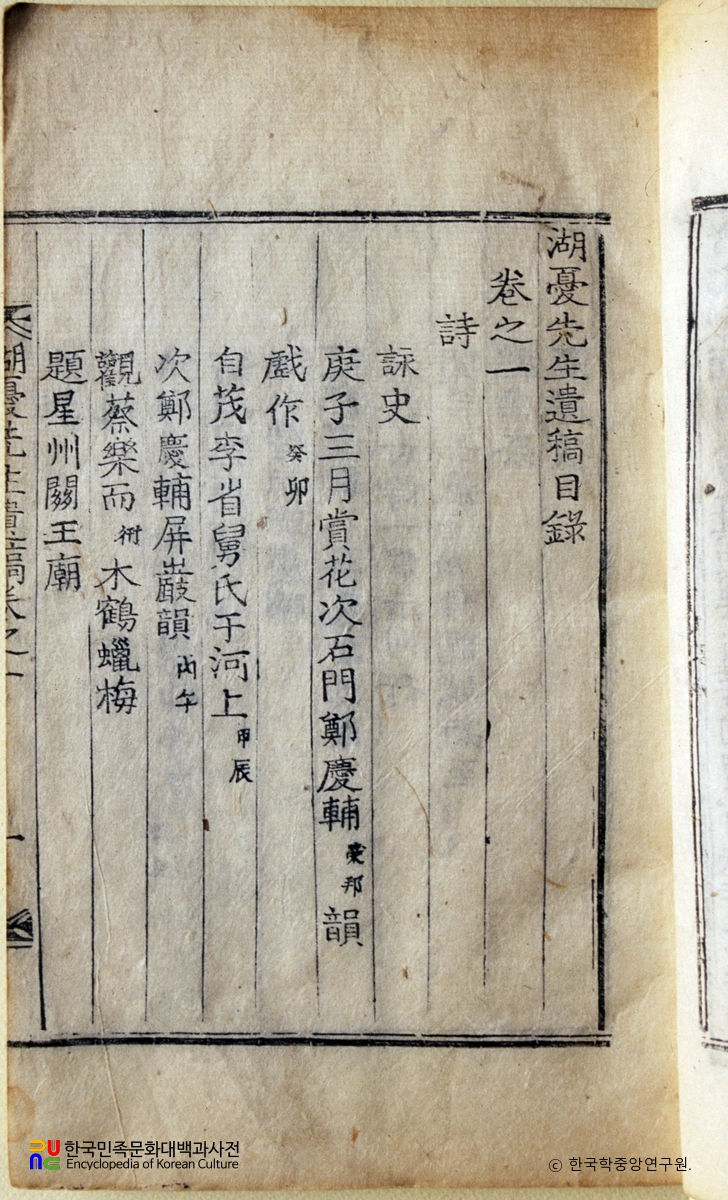 湖憂先生遺稿目錄
卷之一
詩
詠史
庚子三月賞花次石門鄭慶輔 榮邦 韻
戲作 癸卯
自茂李省舅氏于河上 甲辰
次鄭慶輔屏巖韻 丙午
觀蔡樂而 衎 木鶴蠟梅
題星州關王廟
湖憂先生遺稿卷之一
一
한국민족문화대백과사전
Encyclopedia of Korean Culture
© 한국학중앙연구원.